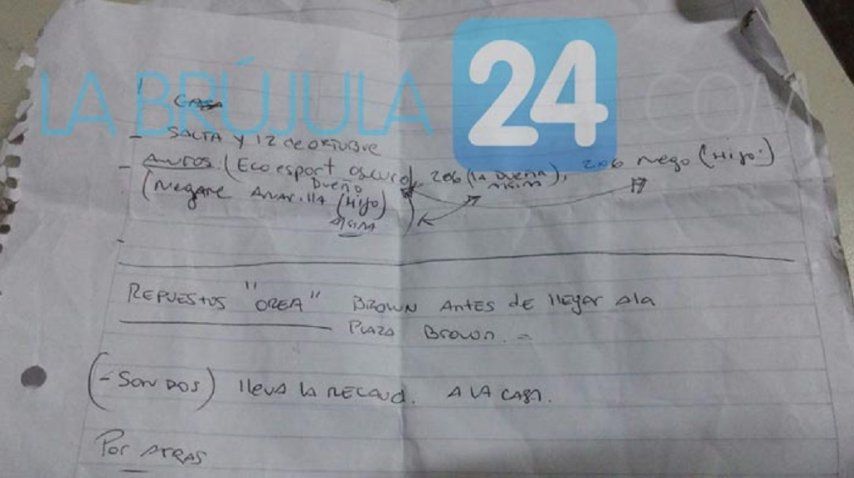 LA BRÚJULA 24 .COM
CASA
- SALTA Y 12 de OCTUBRE
- AUTOS: (Eco esport oscuro), 206 (LA DUEÑA), 206 Negro (Hijo)
DUEÑO
(Megane Amarilla (Hijo)
-
REPUESTOS "OREA" BROWN ANTES de llegar Ala
PLAZA BROWN. -
(- SON DOS) lleva LA RECAUD. A LA CASA.
Por ATRAS